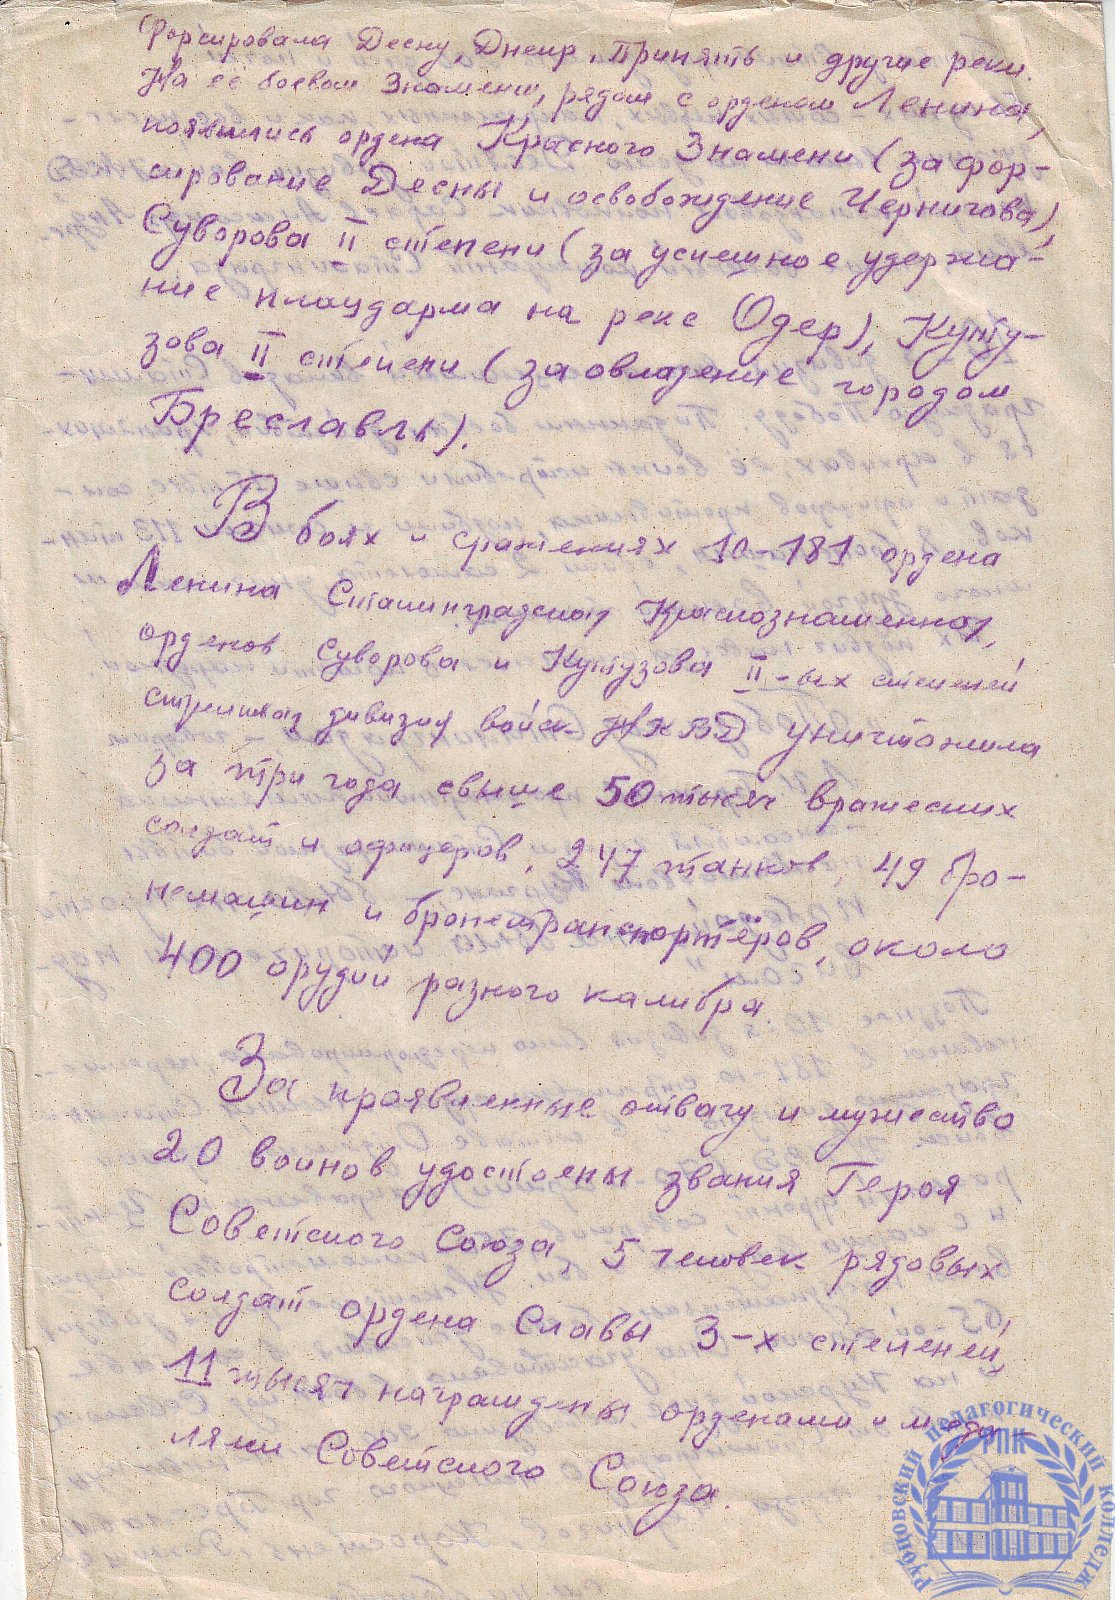 Форсировала Десну, Днепр, Принять и другие реки.
На её боевом Знамени, рядом с орденом Ленина,
появились ордена Красного Знамени (за фор-
сирование Десны и освобождение Чернигова),
Суворова II степени (за успешное удержа-
ние плацдарма на реке Одер), Куту-
зова II степени (за овладение городом
Бреславлы).
В боях и сражениях 10-181 ордена
Ленина Сталинградская Краснознаменная,
орденов Суворова и Кутузова II-ых степеней
стрелковая дивизия войск НКВД уничтожила
за три года свыше 50 тысяч вражеских
солдат и офицеров, 247 танков, 49 бро-
немашин и бронетранспортёров, около
400 орудий разного калибра.
За проявленные отвагу и мужество
20 воинов удостоены звания Героя
Советского Союза, 5 человек рядовых
солдат ордена Славы 3-х степеней,
11 тысяч награждены орденами и меда-
лями Советского Союза.
Рубцовский педагогический колледж
РПК